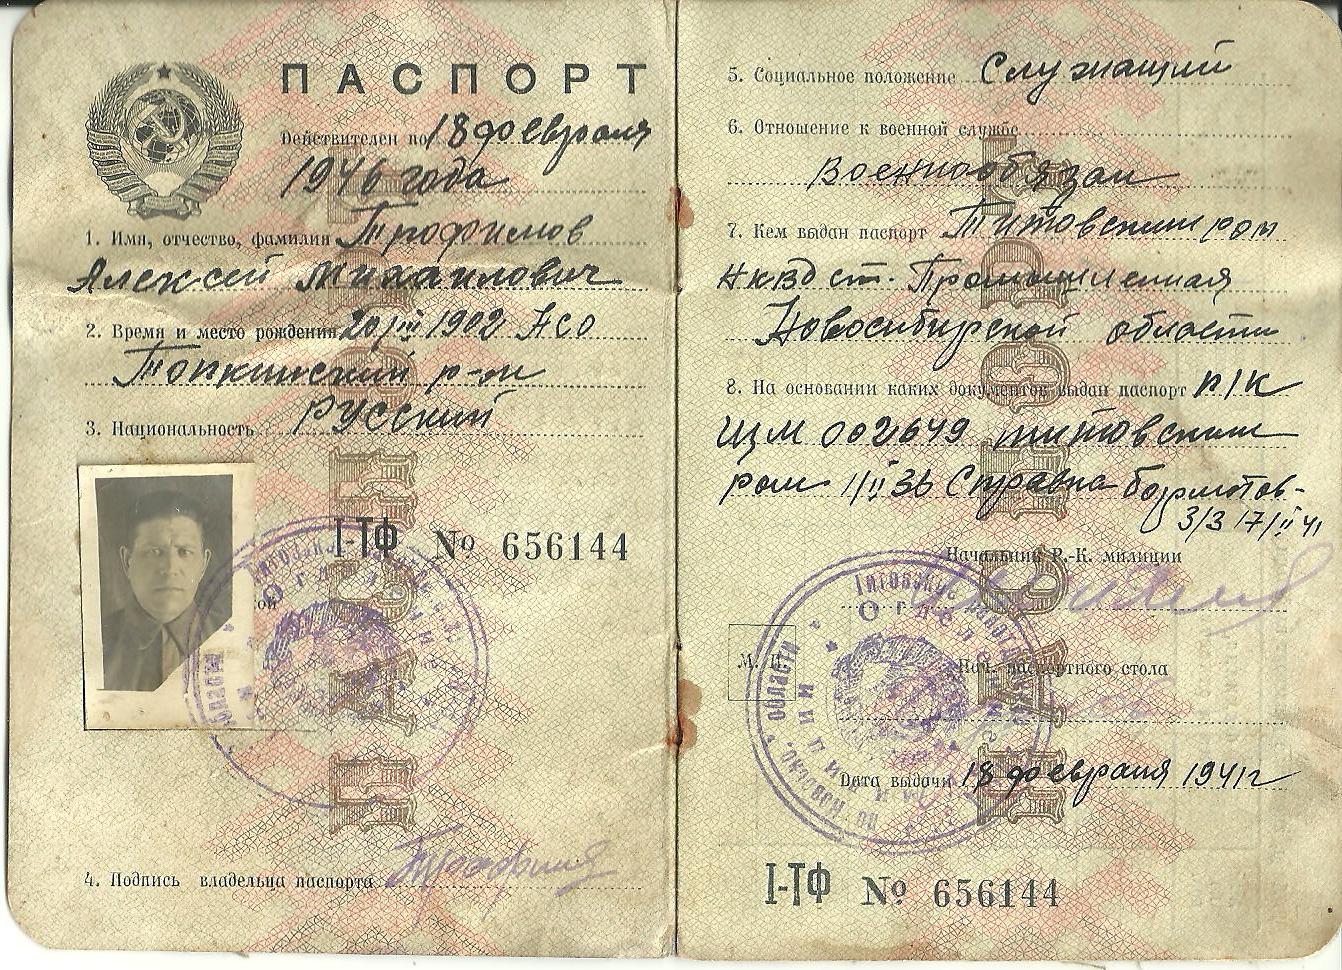 ПАСПОРТ
Действителен по 18 февраля
1946 года
1. Имя, отчество, фамилия Трофимов
Алексей Михаилович
2. Время и место рождения 20/III 1902 НСО
Топкинский р-он
3. Национальность Русский
I-ТФ № 656144
4. Подпись владельца паспорта
5. Социальное положение Служащий
6. Отношение к военной службе
Военнообязан
7. Кем выдан паспорт Титовским ром
НКВД ст. Промышленная
Новосибирской области
8. На основании каких документов выдан паспорт п/к
ИЩМ 002649 Титовским
ром 1/II 36 Справка
3/3 17/II 41
Начальник Р.-К. милиции
М. П.
Нач. паспортного стола
Дата выдачи 18 февраля 1941 г
I-ТФ № 656144